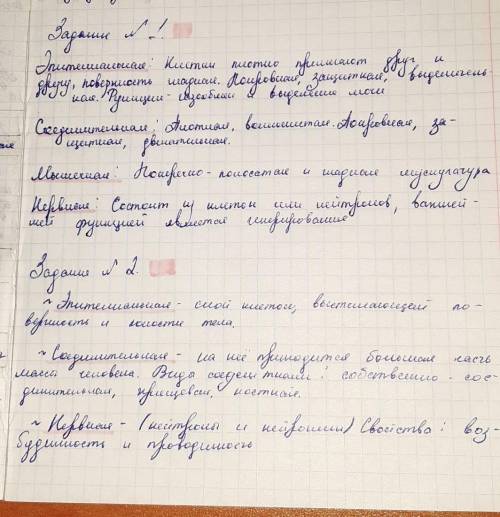 Задание № 1.
Эпителиальная: Клетки плотно прилегают друг к
другу, поверхность гладкая. Покровная, защитная, выделитель
ная. Функции - газообмен и выделение мочи
Соединительная: Плотная, волокнистая. Покровная, за-
щитная, двигательная.
Мышечная: Поперечно-полосатая и гладкая мускулатура
Нервная: Состоит из клеток или нейтронов, важней-
шей функцией является генерирование
Задания № 2.
~ Эпителиальная - слой клеток, выстилающей по-
верхность и полости тела.
~ Соединительная - на неё приходится большая часть
массы человека. Виды соединительной: собственно - сое-
динительная, хрящевая, костная.
~ Нервная - (нейтроны и нейроглии) Свойства: воз-
будимость и проводимость